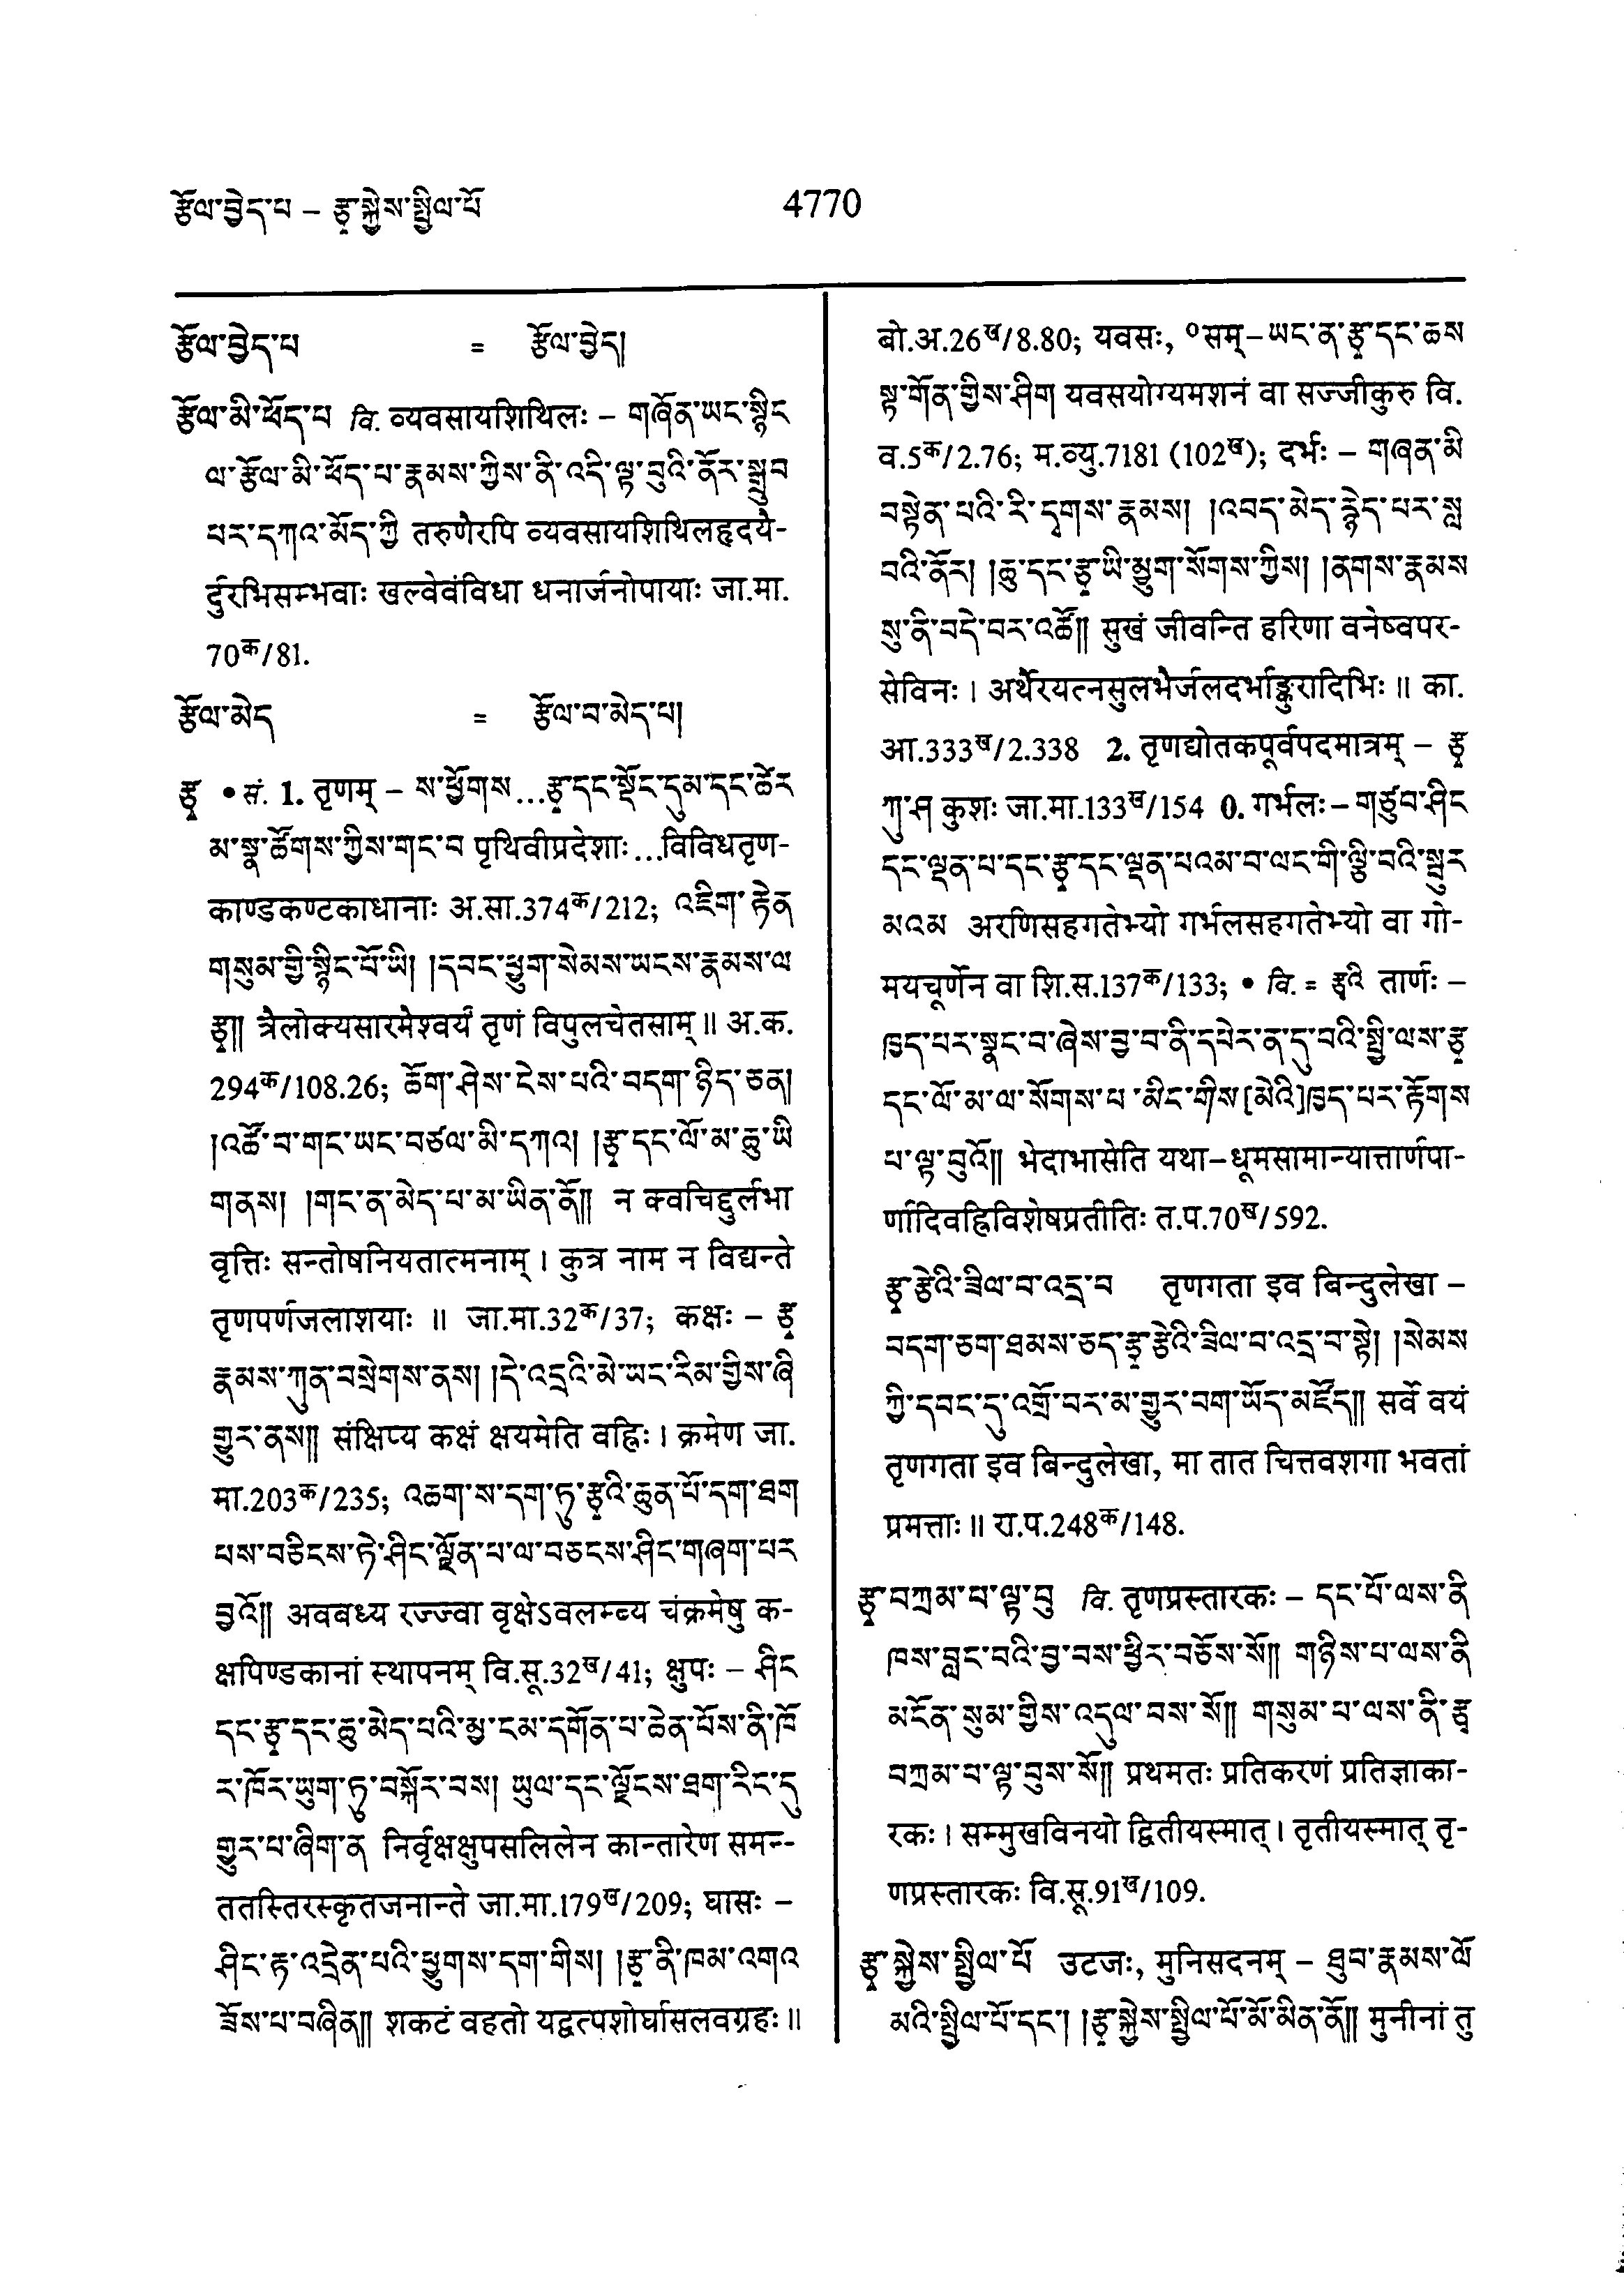 རྩོལ་བྱེད་པ – རྩྭ་སྐྱེས་སྤྱིལ་པོ
4770
རྩོལ་བྱེད་པ = རྩོལ་བྱེད།
རྩོལ་མི་ཕོད་པ वि. व्यवसायशिथिलः – གཞོན་ཡང་སྙིང
ལ་རྩོལ་མི་ཕོད་པ་རྣམས་ཀྱིས་ནི་འདི་ལྟ་བུའི་ནོར་སྒྲུབ
པར་དཀའ་མོད་ཀྱི तरुणैरपि व्यवसायशिथिलहृदयै-
र्दुरभिसम्भवाः खल्वेवंविधा धनार्जनोपायाः जा.मा.
70क/81.
རྩོལ་མེད = རྩོལ་བ་མེད་པ།
རྩྭ • सं. 1. तृणम् – ས་ཕྱོགས...རྩྭ་དང་སྡོང་དུམ་དང་ཚེར
མ་སྣ་ཚོགས་ཀྱིས་གང་བ पृथिवीप्रदेशाः...विविधतृण-
काण्डकण्टकाधानाः अ.सा.374क/212; འཇིག་རྟེན
གསུམ་གྱི་སྙིང་པོ་ཡི། །དབང་ཕྱུག་སེམས་ཡངས་རྣམས་ལ
རྩྭ།། त्रैलोक्यसारमैश्वर्यं तृणं विपुलचेतसाम् ॥ अ.क.
294क/108.26; ཆོག་ཤེས་ངེས་པའི་བདག་ཉིད་ཅན།
།འཚོ་བ་གང་ཡང་བཙལ་མི་དཀའ། །རྩྭ་དང་ལོ་མ་ཆུ་ཡི
གནས། །གང་ན་མེད་པ་མ་ཡིན་ནོ།། न क्वचिद्दुर्लभा
वृत्तिः सन्तोषनियतात्मनाम् । कुत्र नाम न विद्यन्ते
तृणपर्णजलाशयाः ॥ जा.मा.32क/37; कक्षः – རྩྭ
རྣམས་ཀུན་བསྲེགས་ནས། །དེ་འདྲའི་མེ་ཡང་རིམ་གྱིས་ཞི
གྱུར་ནས།། संक्षिप्य कक्षं क्षयमेति वह्निः । क्रमेण जा.
मा.203क/235; འཆག་ས་དག་ཏུ་རྩྭའི་ཆུན་པོ་དག་ཐག
པས་བཅིངས་ཏེ་ཤིང་ལྗོན་པ་ལ་བཅངས་ཤིང་གཞག་པར
བྱའོ།། अवबध्य रज्ज्वा वृक्षेऽवलम्ब्य चंक्रमेषु क-
क्षपिण्डकानां स्थापनम् वि.सू.32ख/41; क्षुपः – ཤིང
དང་རྩྭ་དང་ཆུ་མེད་པའི་མྱ་ངམ་དགོན་པ་ཆེན་པོས་ནི་ཁོ
ར་ཁོར་ཡུག་ཏུ་བསྐོར་བས། ཡུལ་དང་ལྗོངས་ཐག་རིང་དུ
གྱུར་པ་ཞིག་ན निर्वृक्षक्षुपसलिलेन कान्तारेण समन्-
ततस्तिरस्कृतजनान्ते जा.मा.179ख/209; घासः –
ཤིང་རྟ་འདྲེན་པའི་ཕྱུགས་དག་གིས། །རྩྭ་ནི་ཁམ་འགའ
ཟོས་པ་བཞིན།། शकटं वहतो यद्वत्पशोर्घासलवग्रहः ॥
बो.अ.26ख/8.80; यवसः, ०सम् – ཡང་ན་རྩྭ་དང་ཆས
སྟ་གོན་གྱིས་ཤིག यवसयोग्यमशनं वा सज्जीकुरु वि.
व.5क/2.76; म.व्यु.7181 (102ख); दर्भः – གཞན་མི
བསྟེན་པའི་རི་དྭགས་རྣམས། །འབད་མེད་རྙེད་པར་སླ
བའི་ནོར། །ཆུ་དང་རྩྭ་ཡི་མྱུག་སོགས་ཀྱིས། །ནགས་རྣམས
སུ་ནི་བདེ་བར་འཚོ།། सुखं जीवन्ति हरिणा वनेष्वपर-
सेविनः । अर्थैरयत्नसुलभैर्जलदर्भाङ्कुरादिभिः ॥ का.
आ.333ख/2.338 2. तृणद्योतकपूर्वपदमात्रम् – རྩྭ
ཀུ་ཤ कुशः जा.मा.133ख/154 0. गर्भलः – གཙུབ་ཤིང
དང་ལྡན་པ་དང་རྩྭ་དང་ལྡན་པའམ་བ་ལང་གི་ལྕི་བའི་སྦུར
མའམ अरणिसहगतेभ्यो गर्भलसहगतेभ्यो वा गो-
मयचूर्णेन वा शि.स.137क/133; • वि. = རྩྭའི तार्णः –
ཁྱད་པར་སྣང་བ་ཞེས་བྱ་བ་ནི་དཔེར་ན་དུ་བའི་སྤྱི་ལས་རྩྭ
དང་ལོ་མ་ལ་སོགས་པ་མིང་གིས[མེའི]ཁྱད་པར་རྟོགས
པ་ལྟ་བུའོ།། भेदाभासेति यथा – धूमसामान्यात्तार्णपा-
र्णादिवह्निविशेषप्रतीतिः त.प.70ख/592.
རྩྭ་རྩེའི་ཟིལ་བ་འདྲ་བ तृणगता इव बिन्दुलेखा –
བདག་ཅག་ཐམས་ཅད་རྩྭ་རྩེའི་ཟིལ་བ་འདྲ་བ་སྟེ། །སེམས
ཀྱི་དབང་དུ་འགྲོ་བར་མ་གྱུར་བག་ཡོད་མཛོད།། सर्वे वयं
तृणगता इव बिन्दुलेखा, मा तात चित्तवशगा भवतां
प्रमत्ताः ॥ रा.प.248क/148.
རྩྭ་བཀྲམ་པ་ལྟ་བུ वि. तृणप्रस्तारकः – དང་པོ་ལས་ནི
ཁས་བླང་བའི་བྱ་བས་ཕྱིར་བཅོས་སོ།། གཉིས་པ་ལས་ནི
མངོན་སུམ་གྱིས་འདུལ་བས་སོ།། གསུམ་པ་ལས་ནི་རྩྭ
བཀྲམ་པ་ལྟ་བུས་སོ།། प्रथमतः प्रतिकरणं प्रतिज्ञाका-
रकः । सम्मुखविनयो द्वितीयस्मात् । तृतीयस्मात् तृ-
णप्रस्तारकः वि.सू.91ख/109.
རྩྭ་སྐྱེས་སྤྱིལ་པོ उटजः, मुनिसदनम् – ཐུབ་རྣམས་ལོ
མའི་སྤྱིལ་པོ་དང་། །རྩྭ་སྐྱེས་སྤྱིལ་པོ་མོ་མིན་ནོ།། मुनीनां तु